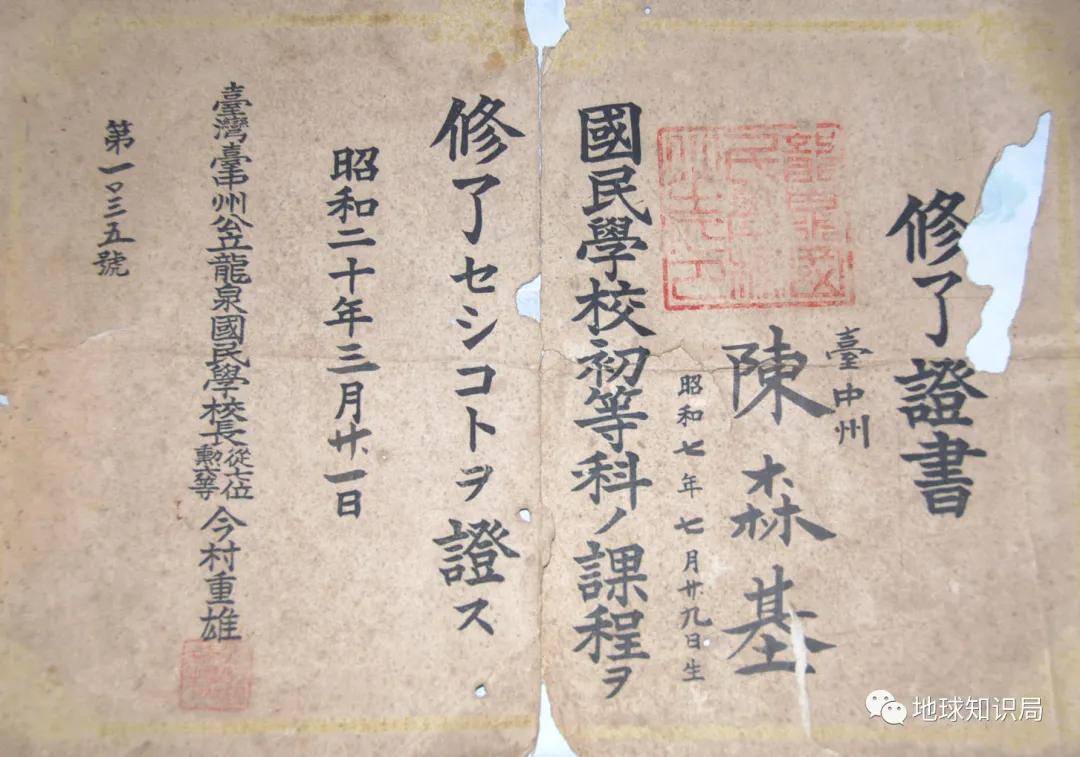 修了證書
臺中州
陳森基
昭和七年七月廿九日生
國民學校初等科ノ課程ヲ
修了セシコトヲ證ス
昭和二十年三月廿一日
臺灣臺中州公立龍泉國民學校長從七位勲八等今村重雄
第一〇三五號
地球知识局